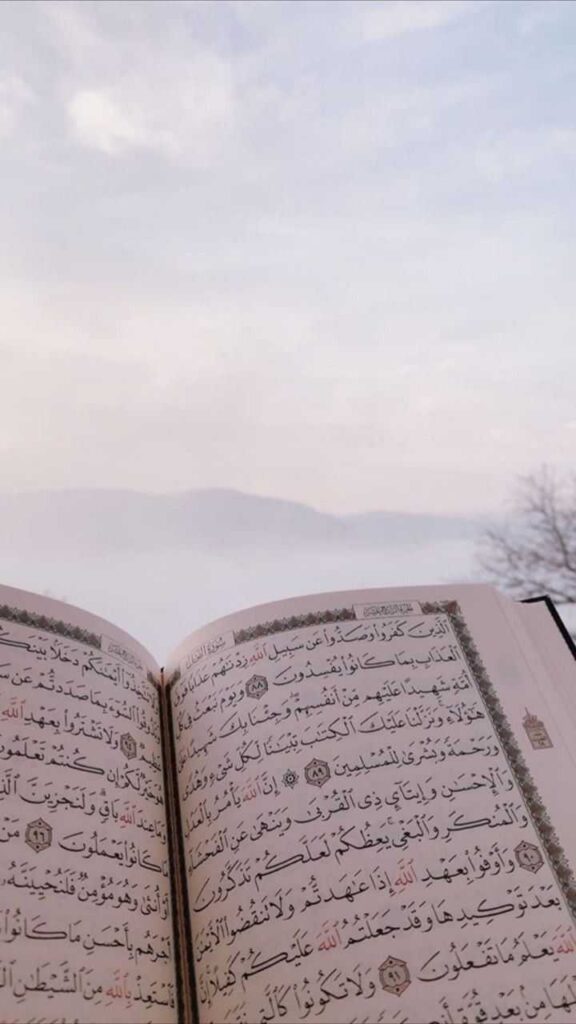 الجزء الرابع عشر
سورة النحل
الَّذِينَ كَفَرُوا وَصَدُّوا عَن سَبِيلِ اللَّهِ زِدْنَاهُمْ عَذَابًا فَوْقَ
الْعَذَابِ بِمَا كَانُوا يُفْسِدُونَ ٨٨ وَيَوْمَ نَبْعَثُ فِي كُلِّ
أُمَّةٍ شَهِيدًا عَلَيْهِم مِّنْ أَنفُسِهِمْ وَجِئْنَا بِكَ شَهِيدًا عَلَىٰ
هَٰؤُلَاءِ وَنَزَّلْنَا عَلَيْكَ الْكِتَابَ تِبْيَانًا لِّكُلِّ شَيْءٍ وَهُدًى
وَرَحْمَةً وَبُشْرَىٰ لِلْمُسْلِمِينَ ٨٩ إِنَّ اللَّهَ يَأْمُرُ بِالْعَدْلِ
وَالْإِحْسَانِ وَإِيتَاءِ ذِي الْقُرْبَىٰ وَيَنْهَىٰ عَنِ الْفَحْشَاءِ
وَالْمُنكَرِ وَالْبَغْيِ يَعِظُكُمْ لَعَلَّكُمْ تَذَكَّرُونَ
٩٠ وَأَوْفُوا بِعَهْدِ اللَّهِ إِذَا عَاهَدتُّمْ وَلَا تَنقُضُوا الْأَيْمَانَ
بَعْدَ تَوْكِيدِهَا وَقَدْ جَعَلْتُمُ اللَّهَ عَلَيْكُمْ كَفِيلًا إِنَّ
اللَّهَ يَعْلَمُ مَا تَفْعَلُونَ ٩١ وَلَا تَكُونُوا كَالَّتِي
غَزْلَهَا مِن بَعْدِ قُوَّةٍ
تَتَّخِذُوا أَيْمَانَكُمْ دَخَلًا بَيْنَكُمْ
وَتَذُوقُوا السُّوءَ بِمَا صَدَدتُّمْ عَن
٩٤ وَلَا تَشْتَرُوا بِعَهْدِ اللَّهِ
هُوَ خَيْرٌ لَّكُمْ إِن كُنتُمْ تَعْلَمُونَ
وَمَا عِندَ اللَّهِ بَاقٍ وَلَنَجْزِيَنَّ
مَا كَانُوا يَعْمَلُونَ ٩٦ مَنْ
أَوْ أُنثَىٰ وَهُوَ مُؤْمِنٌ فَلَنُحْيِيَنَّهُ
أَجْرَهُم بِأَحْسَنِ مَا كَانُوا
فَاسْتَعِذْ بِاللَّهِ مِنَ الشَّيْطَانِ